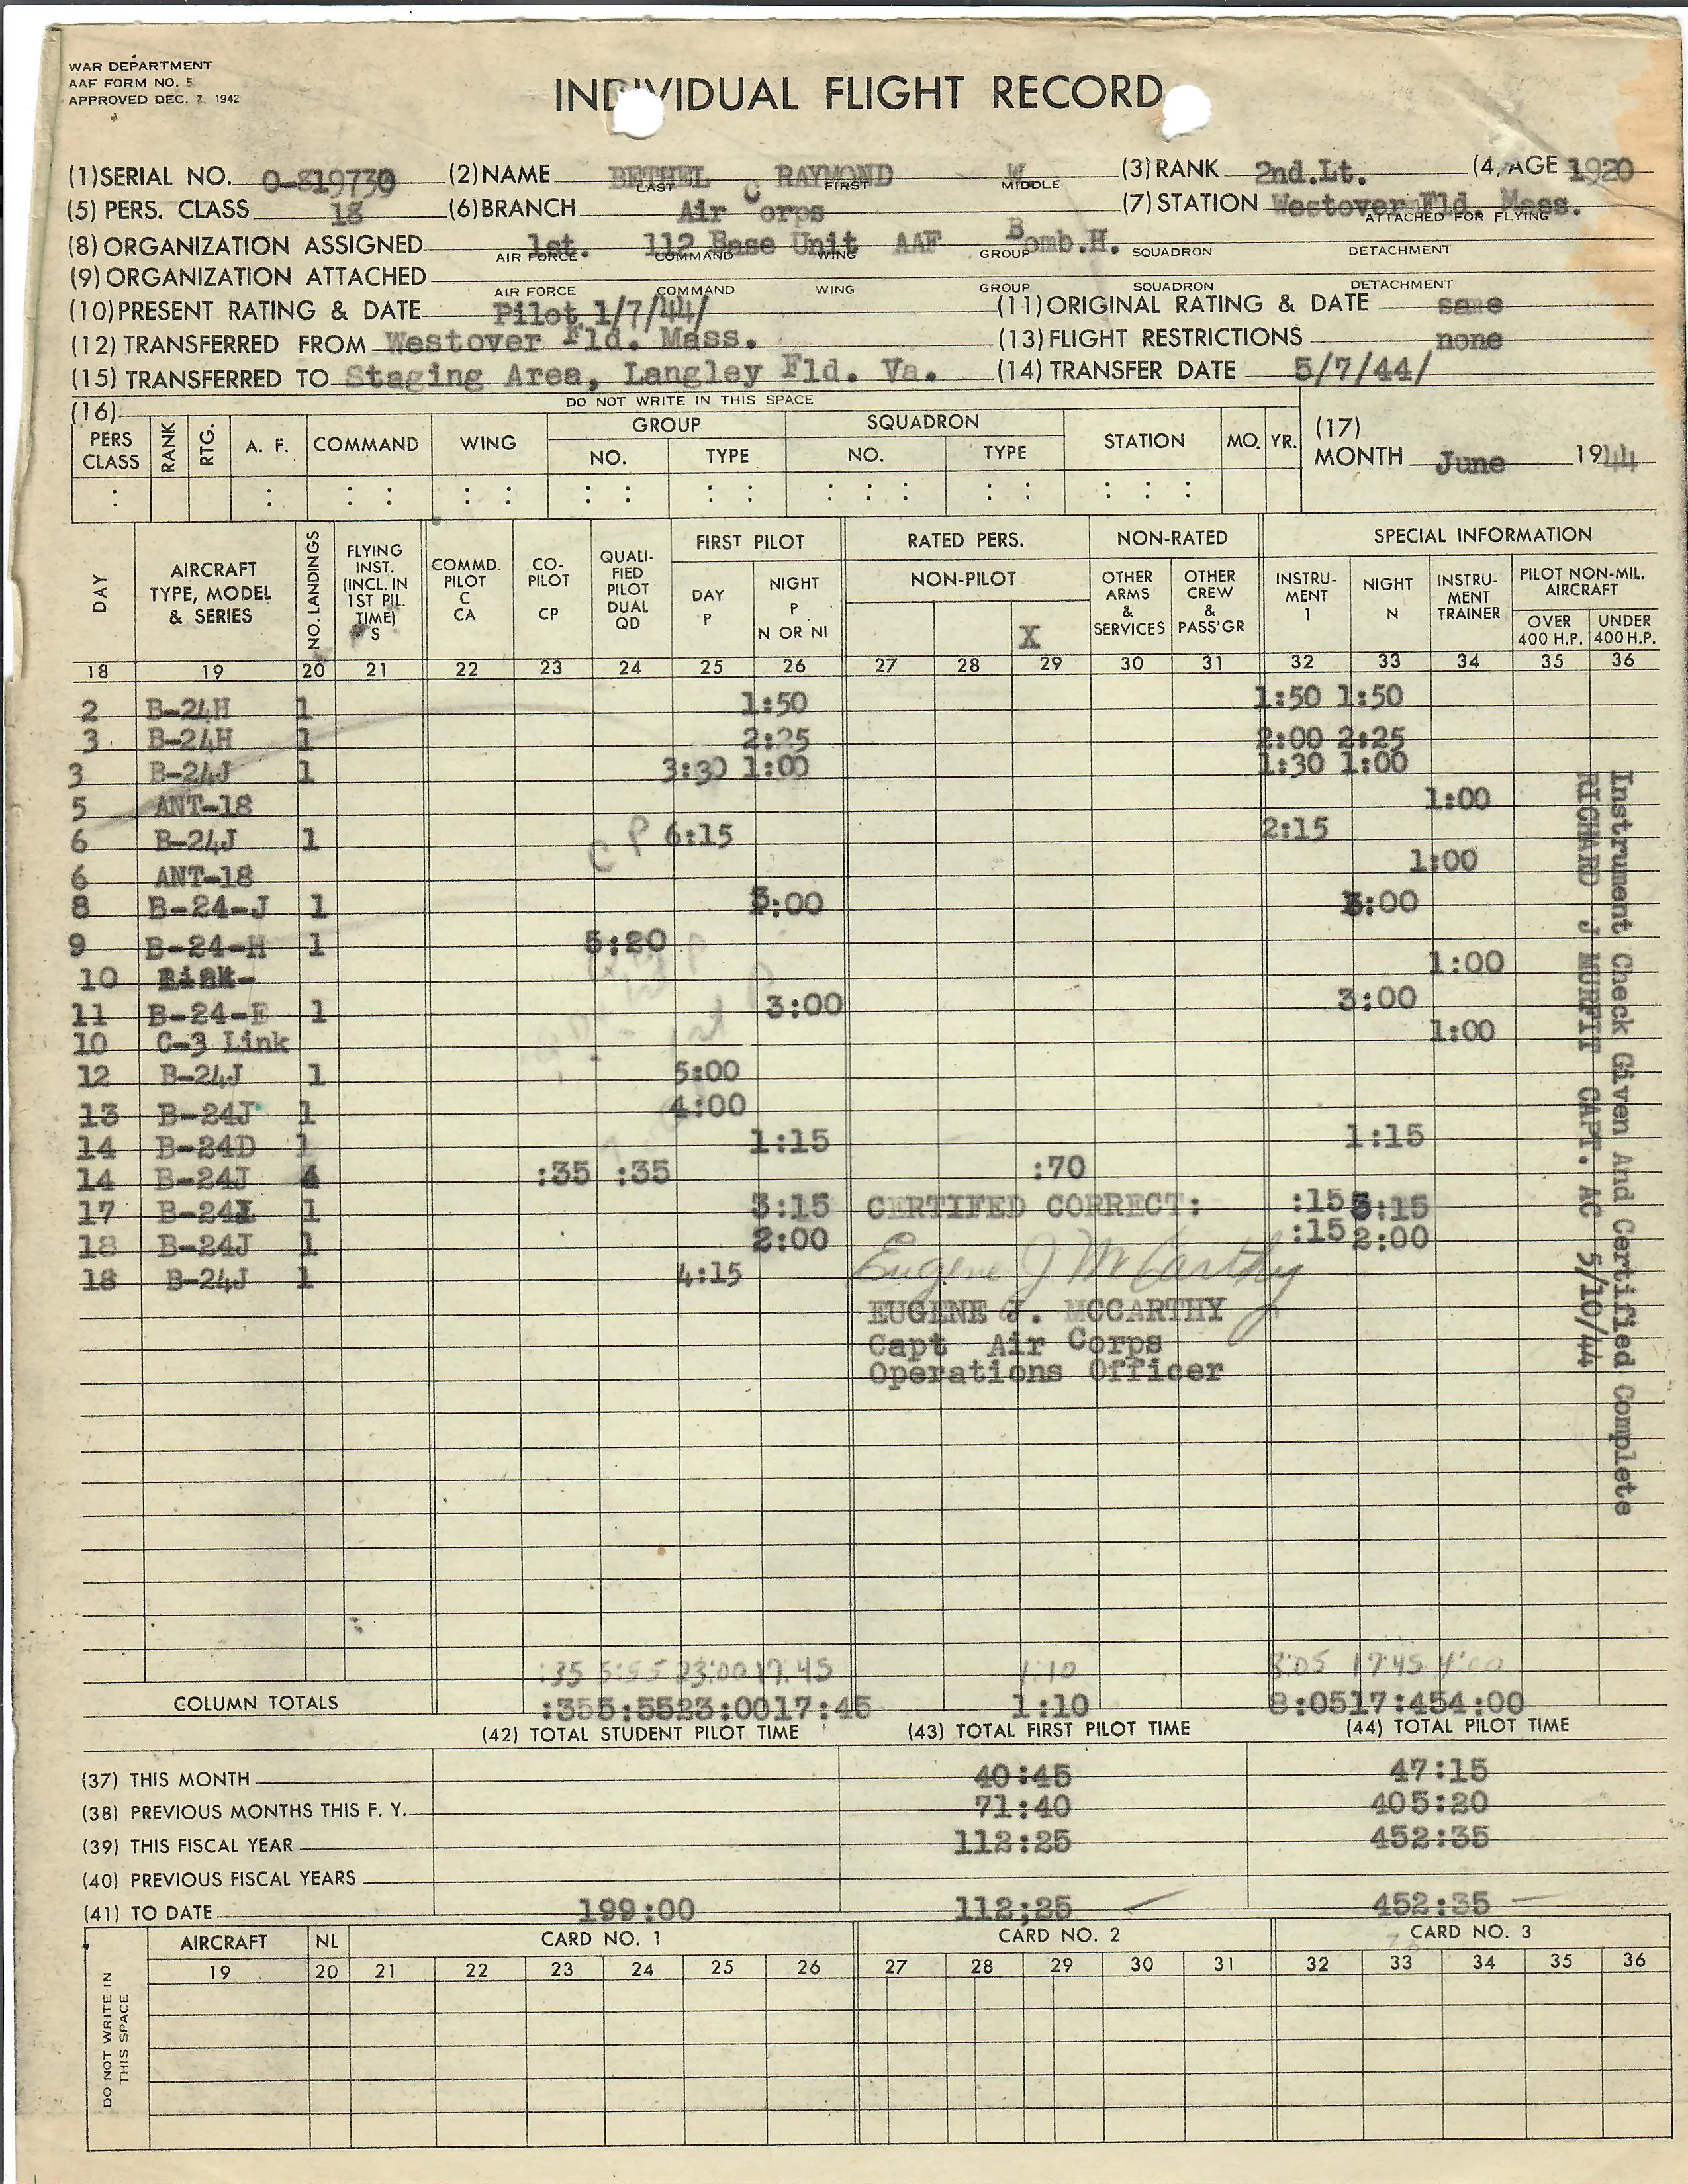 WAR DEPARTMENT
AAF FORM NO. 5
APPROVED DEC. 7, 1942
INDIVIDUAL FLIGHT RECORD
(1) SERIAL NO. O-819730 (2) NAME BETHEL RAYMOND W. (3) RANK 2nd.Lt. (4) AGE 1920
LAST FIRST MIDDLE
(5) PERS. CLASS 18 (6) BRANCH Air Corps (7) STATION Westover Fld. Mass.
ATTACHED FOR FLYING
(8) ORGANIZATION ASSIGNED 1st. 112 Base Unit AAF Bomb.H.
AIR FORCE COMMAND WING GROUP SQUADRON DETACHMENT
(9) ORGANIZATION ATTACHED
AIR FORCE COMMAND WING GROUP SQUADRON DETACHMENT
(10) PRESENT RATING & DATE Pilot 1/7/44/ (11) ORIGINAL RATING & DATE same
(12) TRANSFERRED FROM Westover Fld. Mass. (13) FLIGHT RESTRICTIONS none
(15) TRANSFERRED TO Staging Area, Langley Fld. Va. (14) TRANSFER DATE 5/7/44/
(16) DO NOT WRITE IN THIS SPACE
PERS CLASS RANK RTG. A. F. COMMAND WING GROUP NO. TYPE SQUADRON NO. TYPE STATION MO. YR. (17) MONTH June 1944
DAY AIRCRAFT TYPE, MODEL & SERIES NO. LANDINGS FLYING INST. (INCL. IN 1ST PIL. TIME) S COMMD. PILOT C CA CO-PILOT CP QUALIFIED PILOT DUAL QD FIRST PILOT DAY P NIGHT P N OR NI RATED PERS. NON-PILOT X NON-RATED OTHER ARMS & SERVICES OTHER CREW & PASS'GR SPECIAL INFORMATION INSTRUMENT I NIGHT N INSTRUMENT TRAINER PILOT NON-MIL. AIRCRAFT OVER 400 H.P. UNDER 400 H.P.
18 19 20 21 22 23 24 25 26 27 28 29 30 31 32 33 34 35 36
2 B-24H 1 1:50 1:50 1:50
3 B-24H 1 2:25 2:00 2:25
3 B-24J 1 3:30 1:00 1:30 1:00
5 ANT-18 1:00
6 B-24J 1 CP 6:15 2:15
6 ANT-18 1:00
8 B-24-J 1 3:00 3:00
9 B-24-H 1 5:20
10 1:00
11 B-24-E 1 3:00 3:00
10 C-3 Link 1:00
12 B-24J 1 5:00
13 B-24J 1 4:00
14 B-24D 1 1:15 1:15
14 B-24J 4 :35 :35 :70
17 B-24 1 3:15 CERTIFED CORRECT: :15 3:15
18 B-24J 1 2:00 Eugene J McCarthy :15 2:00
18 B-24J 1 4:15
EUGENE J. MCCARTHY
Capt Air Corps
Operations Officer
Instrument Check Given And Certified Complete
RICHARD J MURFIT CAPT. AC 5/10/44
:35 5:55 23:00 17:45 1:10 8:05 17:45 4:00
COLUMN TOTALS :355:5523:0017:45 1:10 8:0517:454:00
(42) TOTAL STUDENT PILOT TIME (43) TOTAL FIRST PILOT TIME (44) TOTAL PILOT TIME
(37) THIS MONTH 40:45 47:15
(38) PREVIOUS MONTHS THIS F. Y. 71:40 405:20
(39) THIS FISCAL YEAR 112:25 452:35
(40) PREVIOUS FISCAL YEARS
(41) TO DATE 199:00 112;25 452:35
DO NOT WRITE IN THIS SPACE
AIRCRAFT NL CARD NO. 1 CARD NO. 2 CARD NO. 3
19 20 21 22 23 24 25 26 27 28 29 30 31 32 33 34 35 36